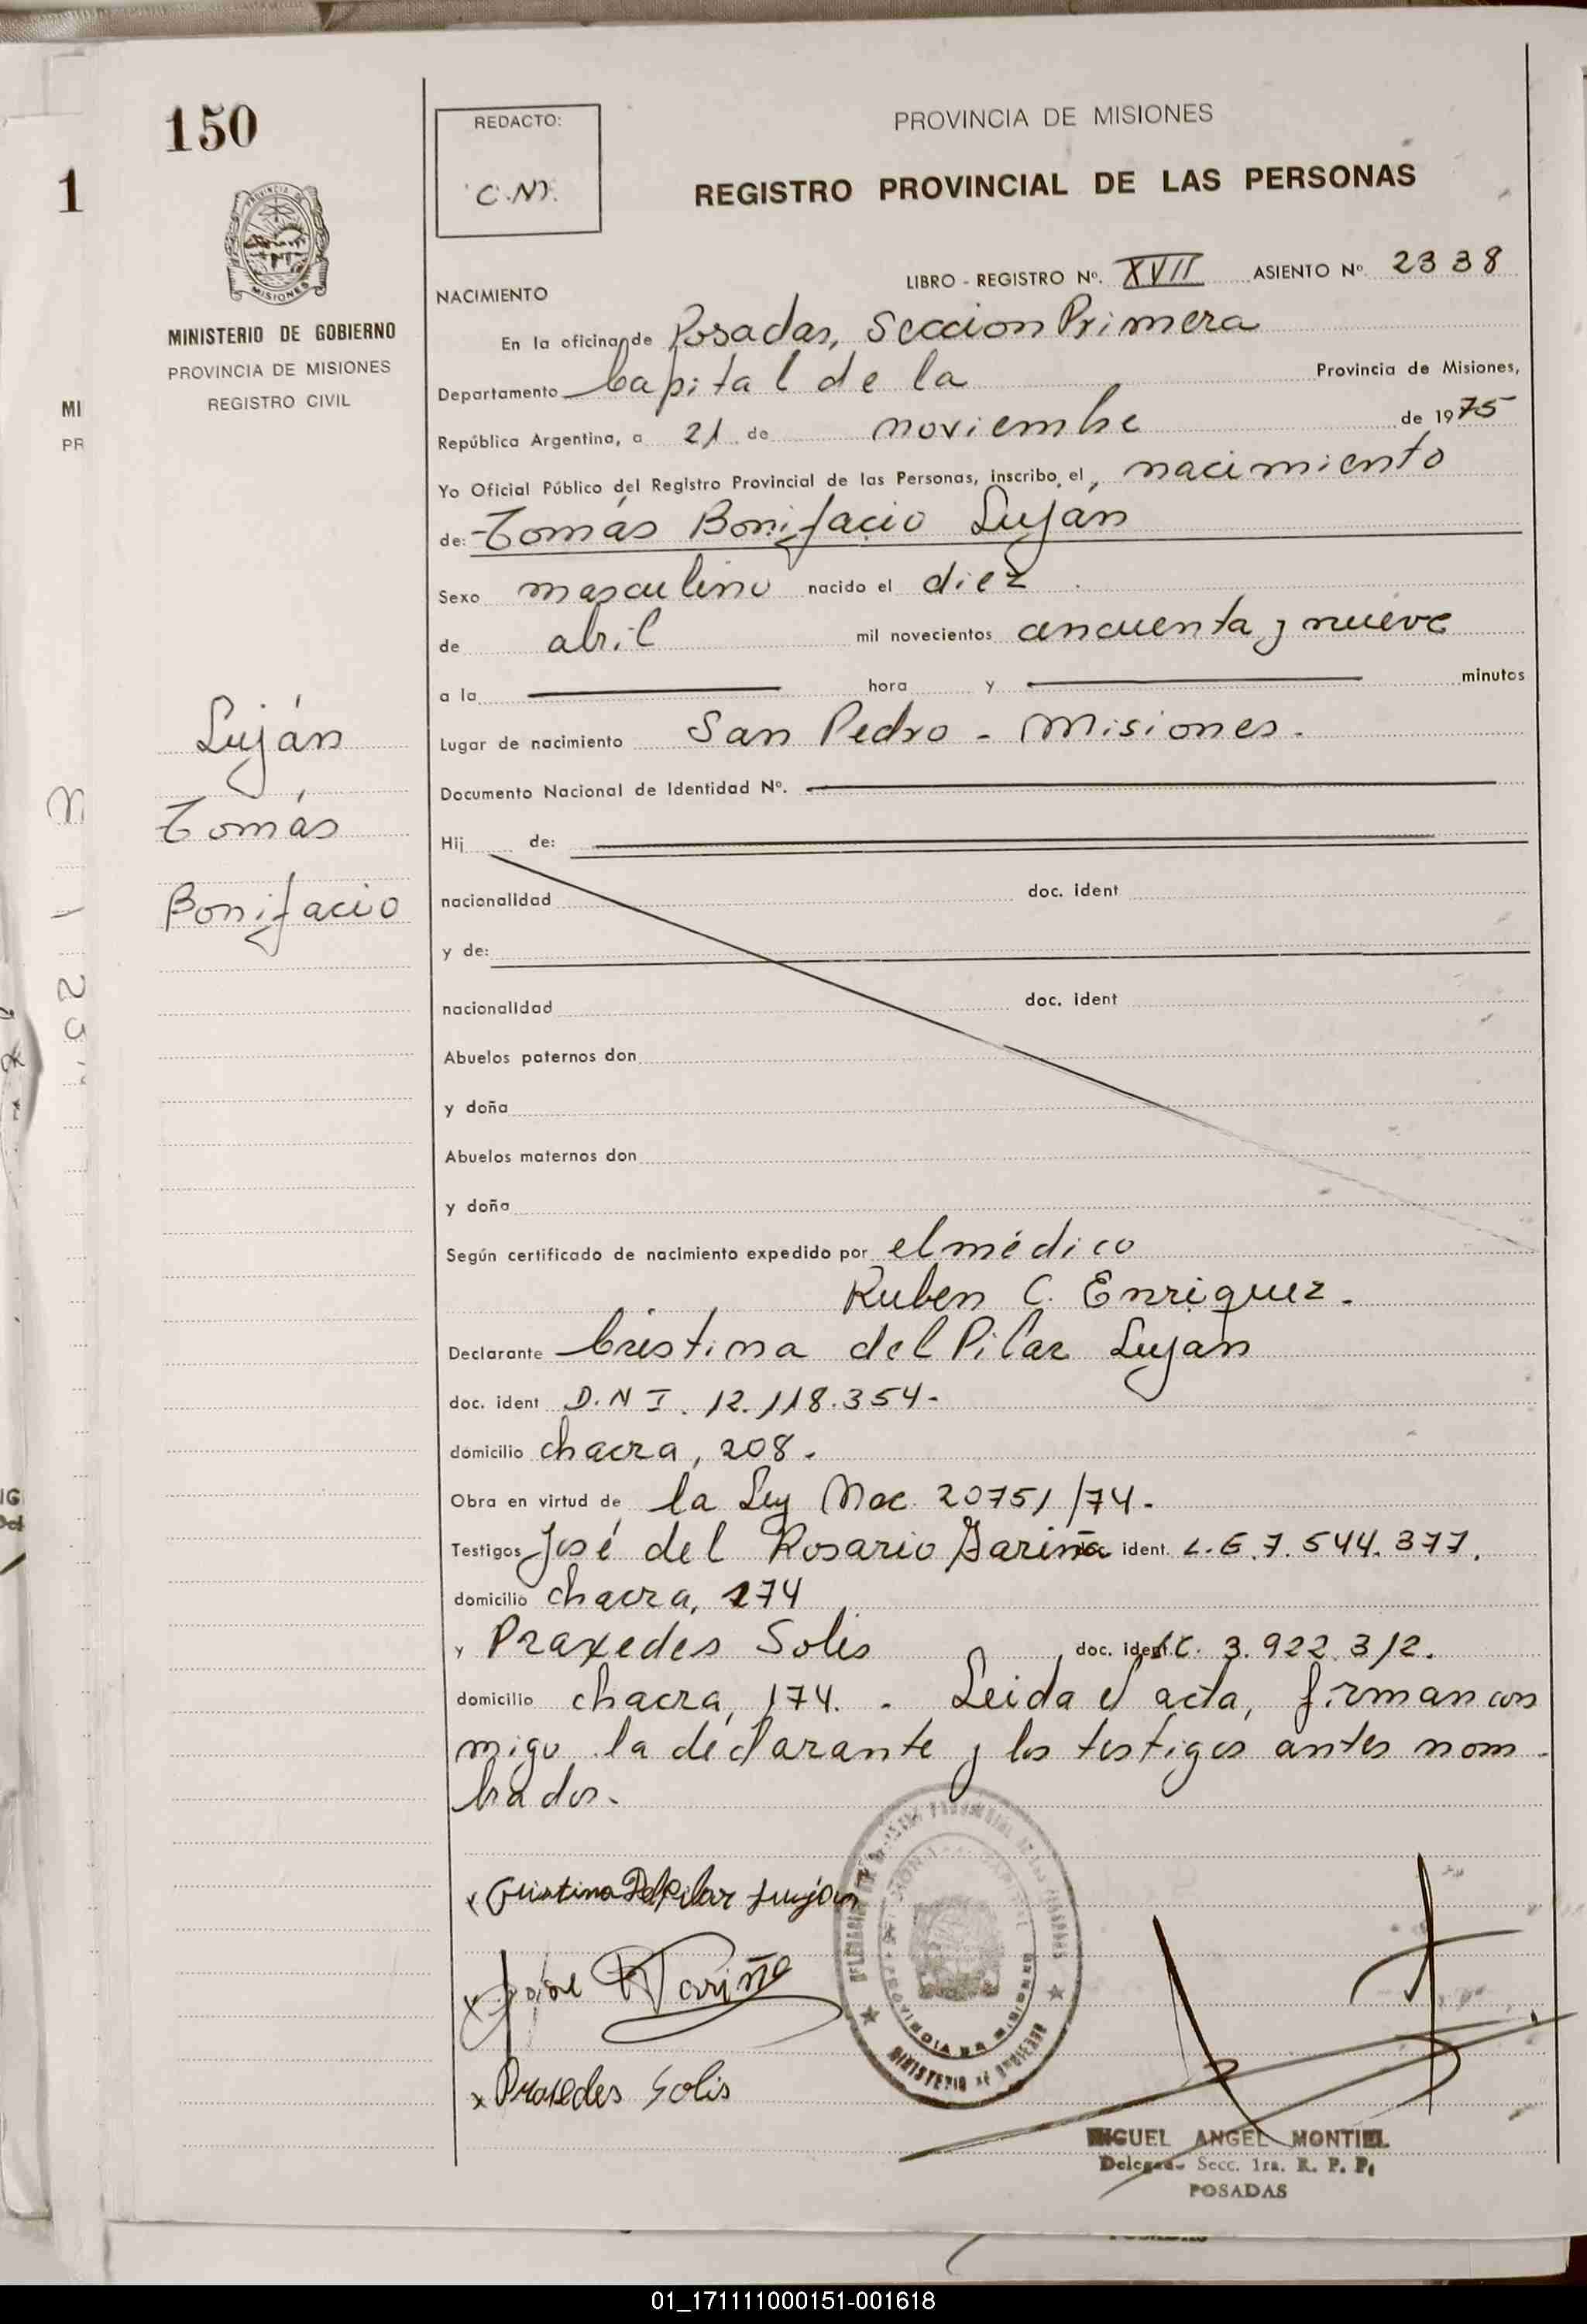 150
1
REDACTO:
C.N.
PROVINCIA DE MISIONES
REGISTRO PROVINCIAL DE LAS PERSONAS
MISIONES
MINISTERIO DE GOBIERNO
PROVINCIA DE MISIONES
REGISTRO CIVIL
MI
PR
LIBRO - REGISTRO Nº. XVII ASIENTO Nº 2338
NACIMIENTO
En la oficina de Posadas, Seccion Primera
Departamento Capital de la Provincia de Misiones,
República Argentina, a 21 de noviembre de 1975
Yo Oficial Público del Registro Provincial de las Personas, inscribo el, nacimiento
de: Tomás Bonifacio Luján
Sexo masculino nacido el diez
de abril mil novecientos cincuenta y nueve
a la hora y minutos
Lugar de nacimiento San Pedro - Misiones.
Luján
Tomás
Bonifacio
Documento Nacional de Identidad Nº.
Hij de:
nacionalidad doc. ident
y de:
nacionalidad doc. ident
Abuelos paternos don
y doña
Abuelos maternos don
y doña
Según certificado de nacimiento expedido por el médico
Ruben C. Enriquez.
Declarante Cristina del Pilar Luján
doc. ident D.N I. 12.118.354-
domicilio chacra, 208.
Obra en virtud de la Ley Nac. 20751/74.
Testigos José del Rosario Gariña ident. L.E.7.544.377.
domicilio chacra, 174
y Praxedes Solis doc. ident L.C. 3.922.312.
domicilio chacra, 174. - Leida el acta, firman con
migo la declarante y los testigos antes nom-
brados.
Cristina Del Pilar Luján
José R Gariña
Praxedes Solis
MINISTERIO DE GOBIERNO
PROVINCIA DE MISIONES
MIGUEL ANGEL MONTIEL
Delegado Secc. 1ra. R. P. P.
POSADAS
01_171111000151-001618